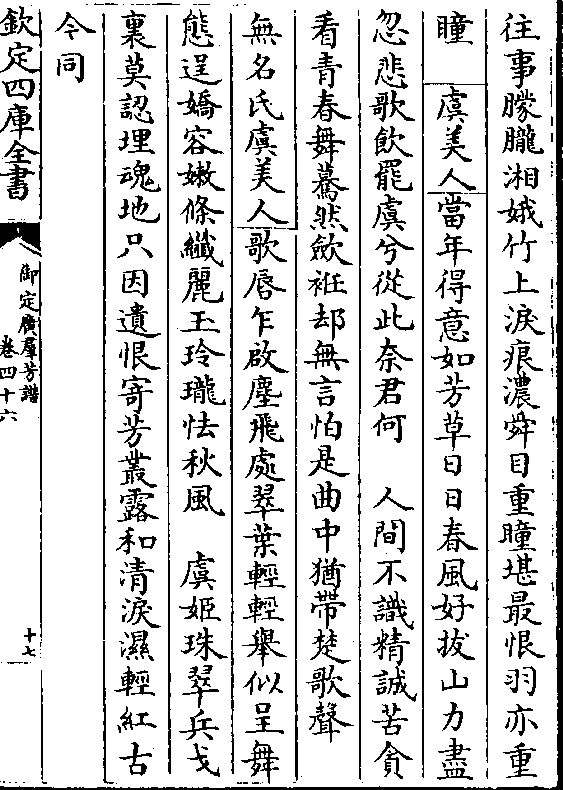 往事朦朧湘娥竹上淚痕濃舜目重瞳堪最恨羽亦重
瞳　虞美人當年得意如芳草日日春風好拔山力盡
忽悲歌飲罷虞兮從此奈君何　人間不識精誠苦貪
看青春舞驀然斂袵却無言怕是曲中猶帶楚歌聲
無名氏虞美人歌唇乍啟塵飛處翠葉輕輕舉似呈舞
態逞嬌容嫩條纖麗玉玲瓏怯秋風　虞姬珠翠兵戈
裏莫認埋魂地只因遺恨寄芳叢露和清淚濕輕紅古
今同
欽定四庫全書
御定廣羣芳譜
卷四十六
十七